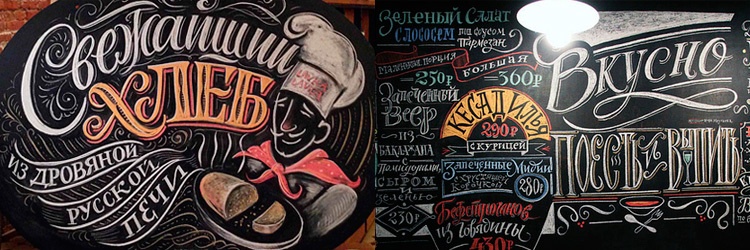 Свежайший
ХЛЕБ
ИЗ ДРОВЯНОЙ
РУССКОЙ
ПЕЧИ
Зеленый Салат
С Лососем под соусом
Пармезан
Маленькая порция
250₽
Большая
360₽
Запеченный
Веер
из
Баклажана
с
Помидорами,
сыром
зеленью
230₽
КЕСАДИЛЬЯ
290₽
с курицей
Запеченные Мидии
280₽
Бефстроганов
из говядины
430₽
Вкусно
ПОЕСТЬ И ВЫПИТЬ